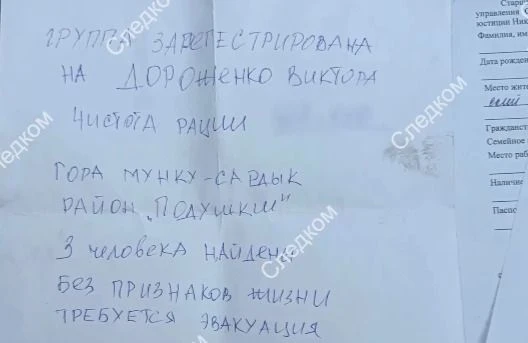 ГРУППА ЗАРЕГЕСТРИРОВАНА
НА ДОРОЖЕНКО ВИКТОРА
ЧИСТОТА РАЦИИ
ГОРА МУНКУ-САРДЫК
РАЙОН „ПОДУШКИ"
3 ЧЕЛОВЕКА НАЙДЕНЫ
БЕЗ ПРИЗНАКОВ ЖИЗНИ
ТРЕБУЕТСЯ ЭВАКУАЦИЯ
Следком
Следком
Следком
Следком
Следком
Следком
Следком
Старш
управления С
юстиции Ник
Фамилия, им
Дата рожден
Место жите
Гражданст
Семейное
Место раб
Наличие
Паспо